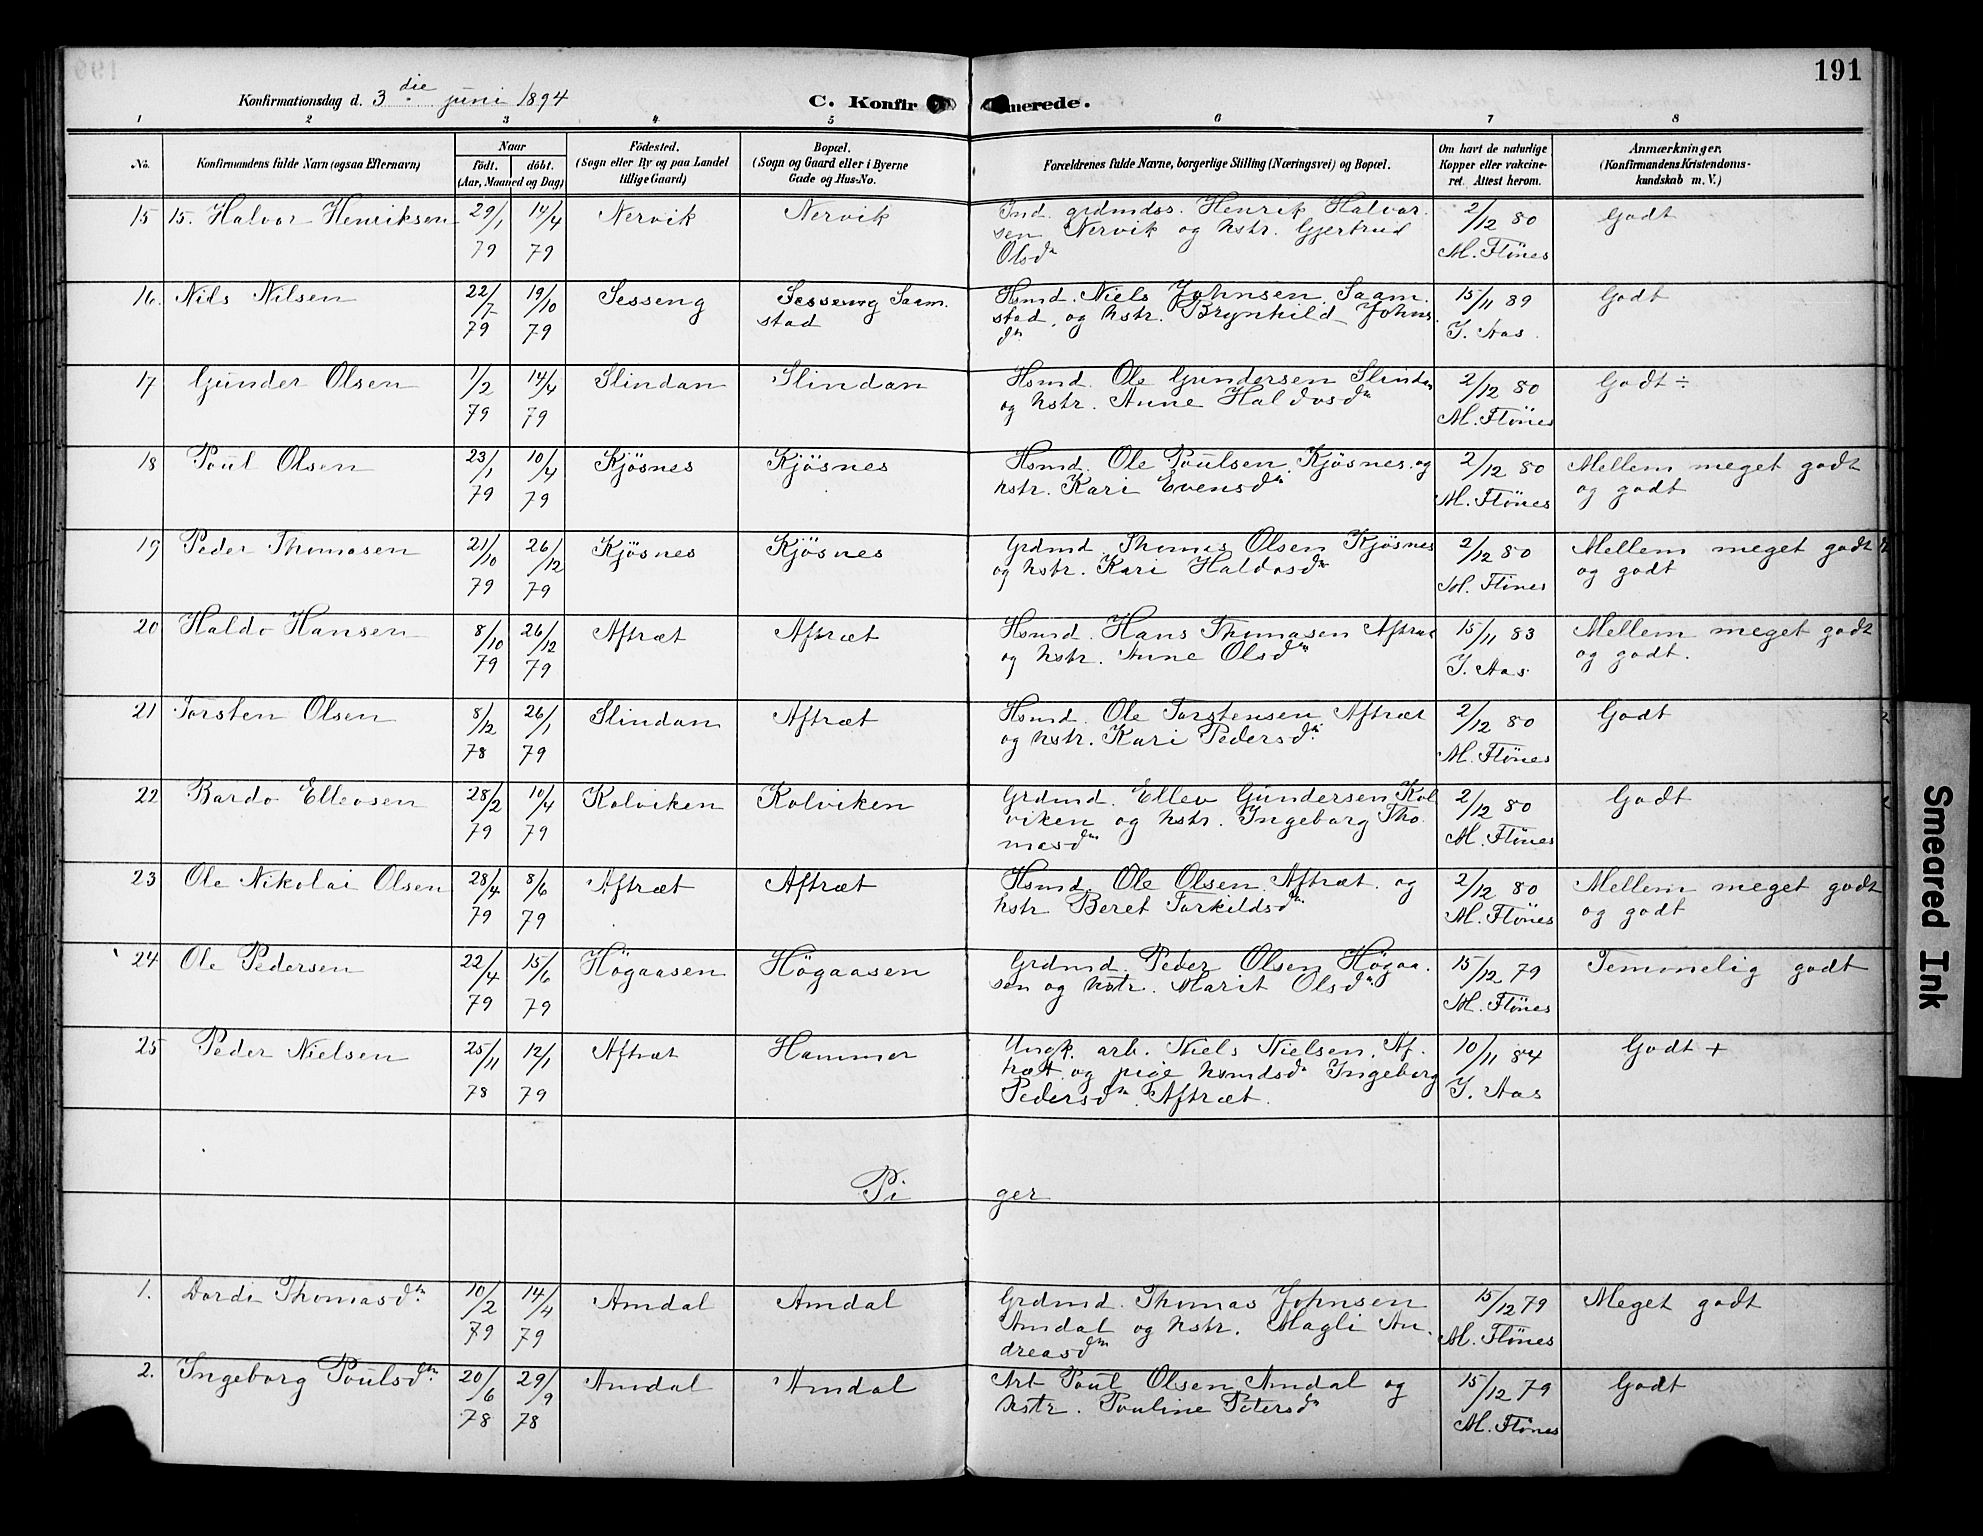 191
Konfirmationsdag d. 3die juni 1894 C. Konfirmerede.
1 2 3 4 5 6 7 8
No. Konfirmandens fulde Navn (ogsaa Efternavn) Naar Födt. döbt. (Aar, Maaned og Dag) Födested. (Sogn eller By og paa Landet tillige Gaard) Bopæl. (Sogn og Gaard eller i Byerne Gade og Hus-No. Forældrenes fulde Navne, borgerlige Stilling (Næringsvei) og Bopæl. Om havt de naturlige Kopper eller vakcineret. Attest herom. Anmærkninger. (Konfirmandens Kristendomskundskab m. V.)
15 15. Halvor Henriksen 29/1 79 14/4 79 Nervik Nervik Ind. grdmdss. Henrik Halvor-
sen Nervik og hstr. Gjertrud
Olsdn 2/12 80 M. Flönes Godt
16. Nils Nilsen 22/7 79 19/10 79 Sesseng Sesseng Saam-
stad Hsmd. Niels Johnsen Saam-
stad, og hstr. Brynhild Johns-
dn 15/11 89 J. Aas. Godt
17 Gunder Olsen 1/2 79 14/4 79 Slindan Slindan Hsmd. Ole Gundersen Slindan
og hstr. Anne Haldosdn 2/12 80 M. Flönes Godt ÷
18 Poul Olsen 23/1 79 10/4 79 Kjösnes Kjösnes Hsmd. Ole Poulsen Kjösnes og
hstr. Kari Evensdn 2/12 80 M. Flönes Mellem meget godt
og godt
19 Peder Thomasen 21/10 79 26/12 79 Kjösnes Kjösnes Grdmd. Thomas Olsen Kjösnes
og hstr. Kari Haldosdn 2/12 80 M. Flönes Mellem meget godt
og godt
20 Haldo Hansen 8/10 79 26/12 79 Aftræt Aftræt Hsmd. Hans Thomasen Aftræt
og hstr. Anne Olsdn 15/11 83 J. Aas. Mellem meget godt
og godt.
21 Torsten Olsen 8/12 78 26/1 79 Slindan Aftræt Hsmd. Ole Torstensen Aftræt
og hstr. Kari Pedersdn 2/12 80 M. Flönes Godt
22 Bardo Ellevsen 28/2 79 10/4 79 Kolviken Kolviken Grdmd. Ellev Gundersen Kol
viken og hstr. Ingeborg Tho-
masdn 2/12 80 M. Flönes Godt
23 Ole Nikolai Olsen 28/4 79 8/6 79 Aftræt Aftræt Hsmd. Ole Olsen Aftræt. og
hstr Beret Torkildsdn 2/12 80 M. Flönes Mellem meget godt
og godt
24 Ole Pedersen 22/4 79 15/6 79 Högaasen Högaasen Grdmd. Peder Olsen Högaa-
sen og hstr. Marit Olsdn 15/12 79 M. Flönes Temmelig godt
25 Peder Nielsen 25/11 78 12/1 79 Aftræt Hammer Ungk. arb. Niels Nielsen Af-
træt og pige hsmdsdn Ingeborg
Pedersdn Aftræt. 10/11 84 J. Aas Godt +
Piger
1. Dordi Thomasdn 10/2 79 14/4 79 Amdal Amdal Grdmd. Thomas Johnsen
Amdal og hstr. Magli An-
dreasdn 15/12 79 M. Flönes Meget godt
2. Ingeborg Poulsdn 20/6 78 29/9 78 Amdal Amdal Arb Poul Olsen Amdal og
hstr. Pauline Petersdn 15/12 79 M. Flönes Godt
Smeared Ink